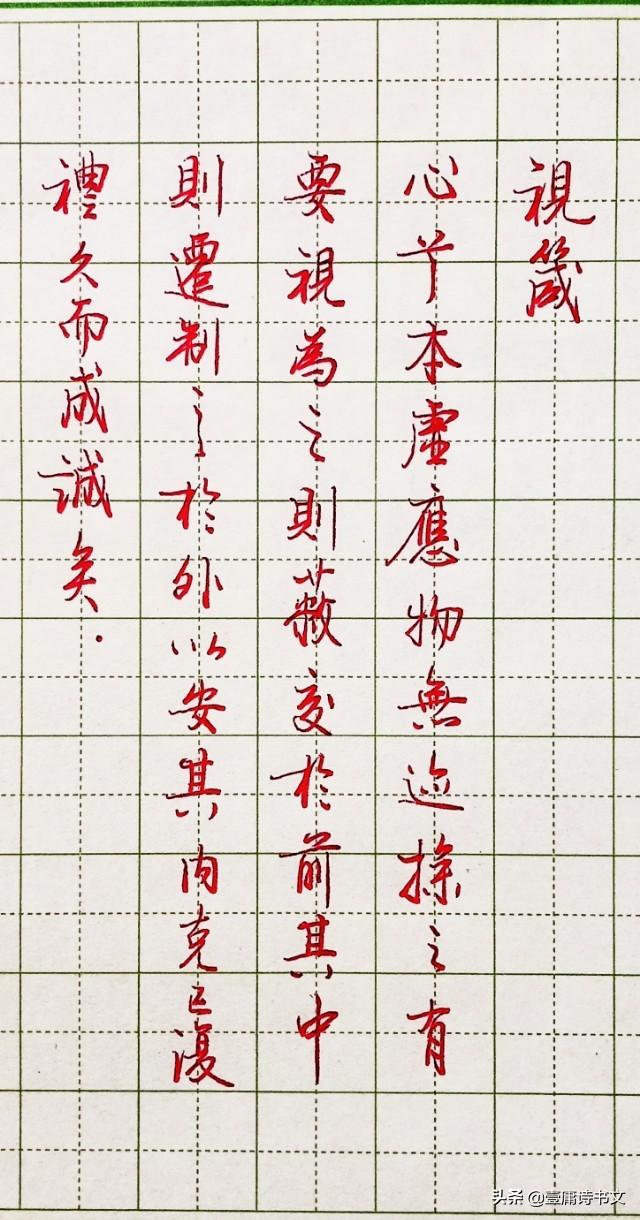 視箴
心兮本虛應物無迹操之有
要視為之則蔽交於前其中
則遷制之於外以安其内克己復
禮久而成誠矣.
头条 @壹庸诗书文